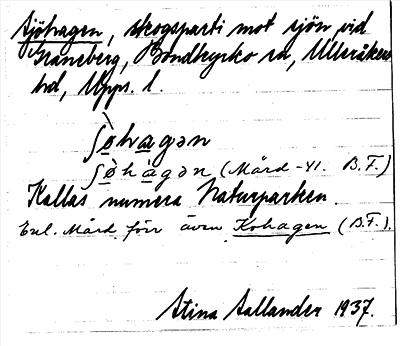 Sjöhagen, skogsparti mot sjön vid
Graneberg, Bondkyrko sn, Ulleråkers
hd, Upps. l.
ʃø̀hagən
ʃø̀hàgən (Mård -41. B.F.)
Kallas numera Naturparken.
Enl. Mård förr även Kohagen (B.F.).
Stina Aallander 1937.